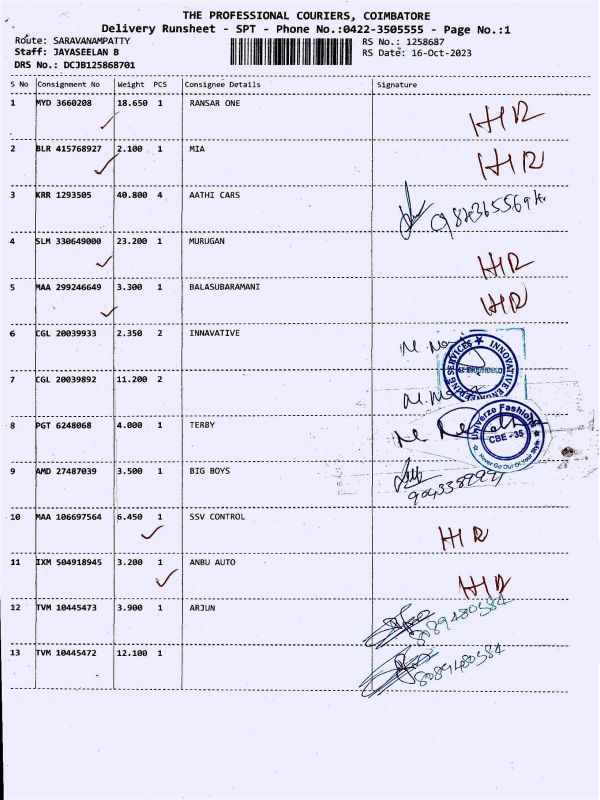 THE PROFESSIONAL COURIERS, COIMBATORE
Delivery Runsheet - SPT - Phone No.:0422-3505555 - Page No.:1
Route: SARAVANAMPATTY RS No.: 1258687
Staff: JAYASEELAN B RS Date: 16-Oct-2023
DRS No.: DCJB125868701
S No Consignment No Weight PCS Consignee Details Signature
1 MYD 3660208 18.650 1 RANSAR ONE
2 BLR 415768927 2.100 1 MIA
3 KRR 1293505 40.800 4 AATHI CARS
4 SLM 330649000 23.200 1 MURUGAN
5 MAA 299246649 3.300 1 BALASUBARAMANI
6 CGL 20039933 2.350 2 INNAVATIVE
INNOVATIVE
ENGINEERING SERVICES
7 CGL 20039892 11.200 2
8 PGT 6248068 4.000 1 TERBY
Universe Fashions
CBE -35
Never Go Out Of Your Style
9 AMD 27487039 3.500 1 BIG BOYS
10 MAA 106697564 6.450 1 SSV CONTROL
11 IXM 504918945 3.200 1 ANBU AUTO
12 TVM 10445473 3.900 1 ARJUN
8089480584
13 TVM 10445472 12.100 1
8089480584